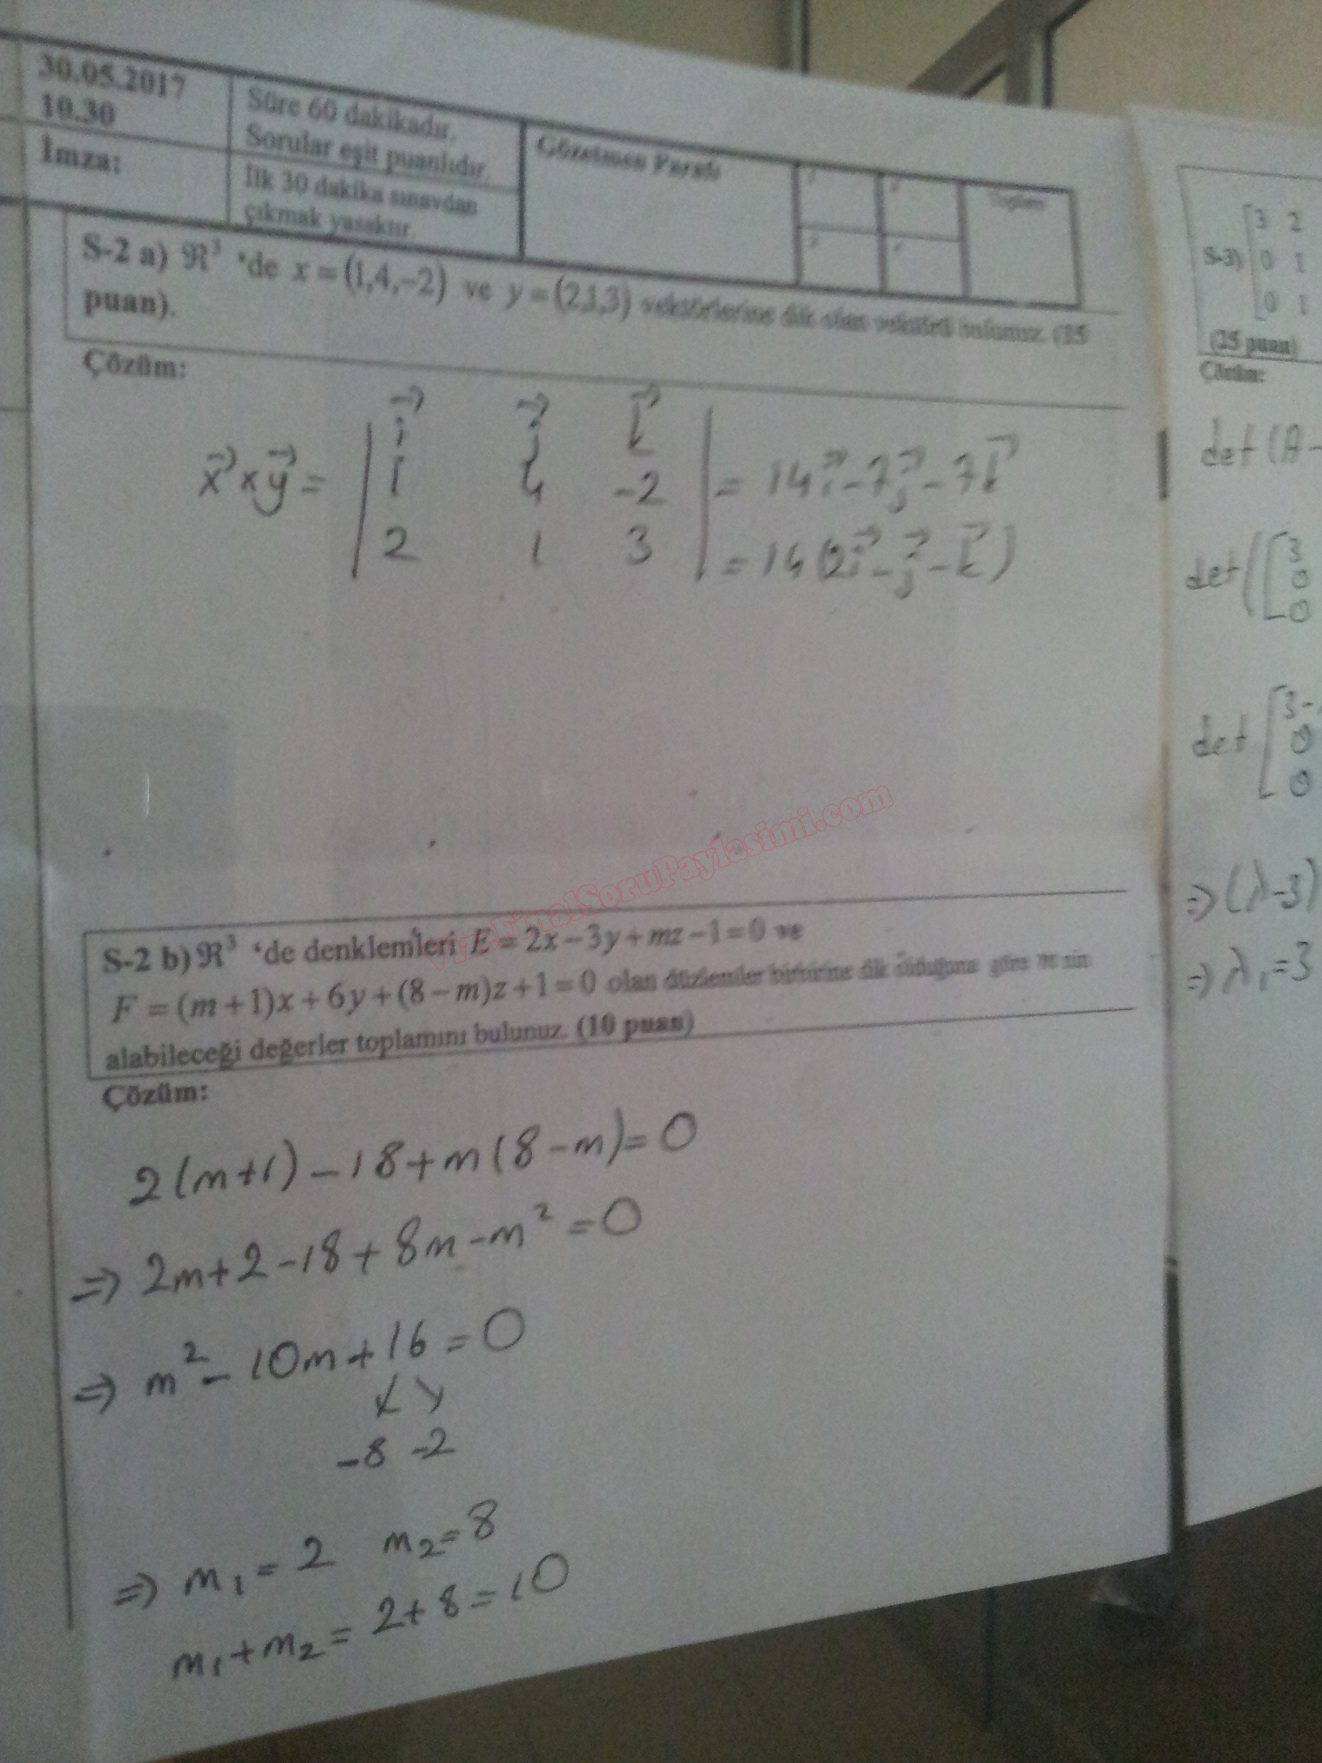 30.05.2017
10.30
İmza:
Süre 60 dakikadır.
Sorular eşit puanlıdır.
İlk 30 dakika sınavdan
çıkmak yasaktır.
Gözetmen Parafı
Toplam
S-2 a) ℜ³ 'de x = (1,4,-2) ve y = (2,1,3) vektörlerine dik olan vektörü bulunuz. (15
puan).
Çözüm:
i⃗ j⃗ k⃗
x⃗ × y⃗ = | 1 4 -2 | = 14i⃗ - 7j⃗ - 7k⃗
2 1 3 = 14(2i⃗ - j⃗ - k⃗)
VizeFinalSoruPaylasimi.com
S-2 b) ℜ³ 'de denklemleri E = 2x - 3y + mz - 1 = 0 ve
F = (m+1)x + 6y + (8-m)z + 1 = 0 olan düzlemler birbirine dik olduğuna göre m nin
alabileceği değerler toplamını bulunuz. (10 puan)
Çözüm:
2(m+1) - 18 + m(8-m) = 0
⇒ 2m + 2 - 18 + 8m - m² = 0
⇒ m² - 10m + 16 = 0
-8 -2
⇒ m₁ = 2 m₂ = 8
m₁ + m₂ = 2 + 8 = 10
3 2
S-3) 0 1
0 1
(25 puan)
Çözüm:
det(A -
det([3
0
0
det [3-
0
0
⇒ (λ-3)
⇒ λ₁ = 3